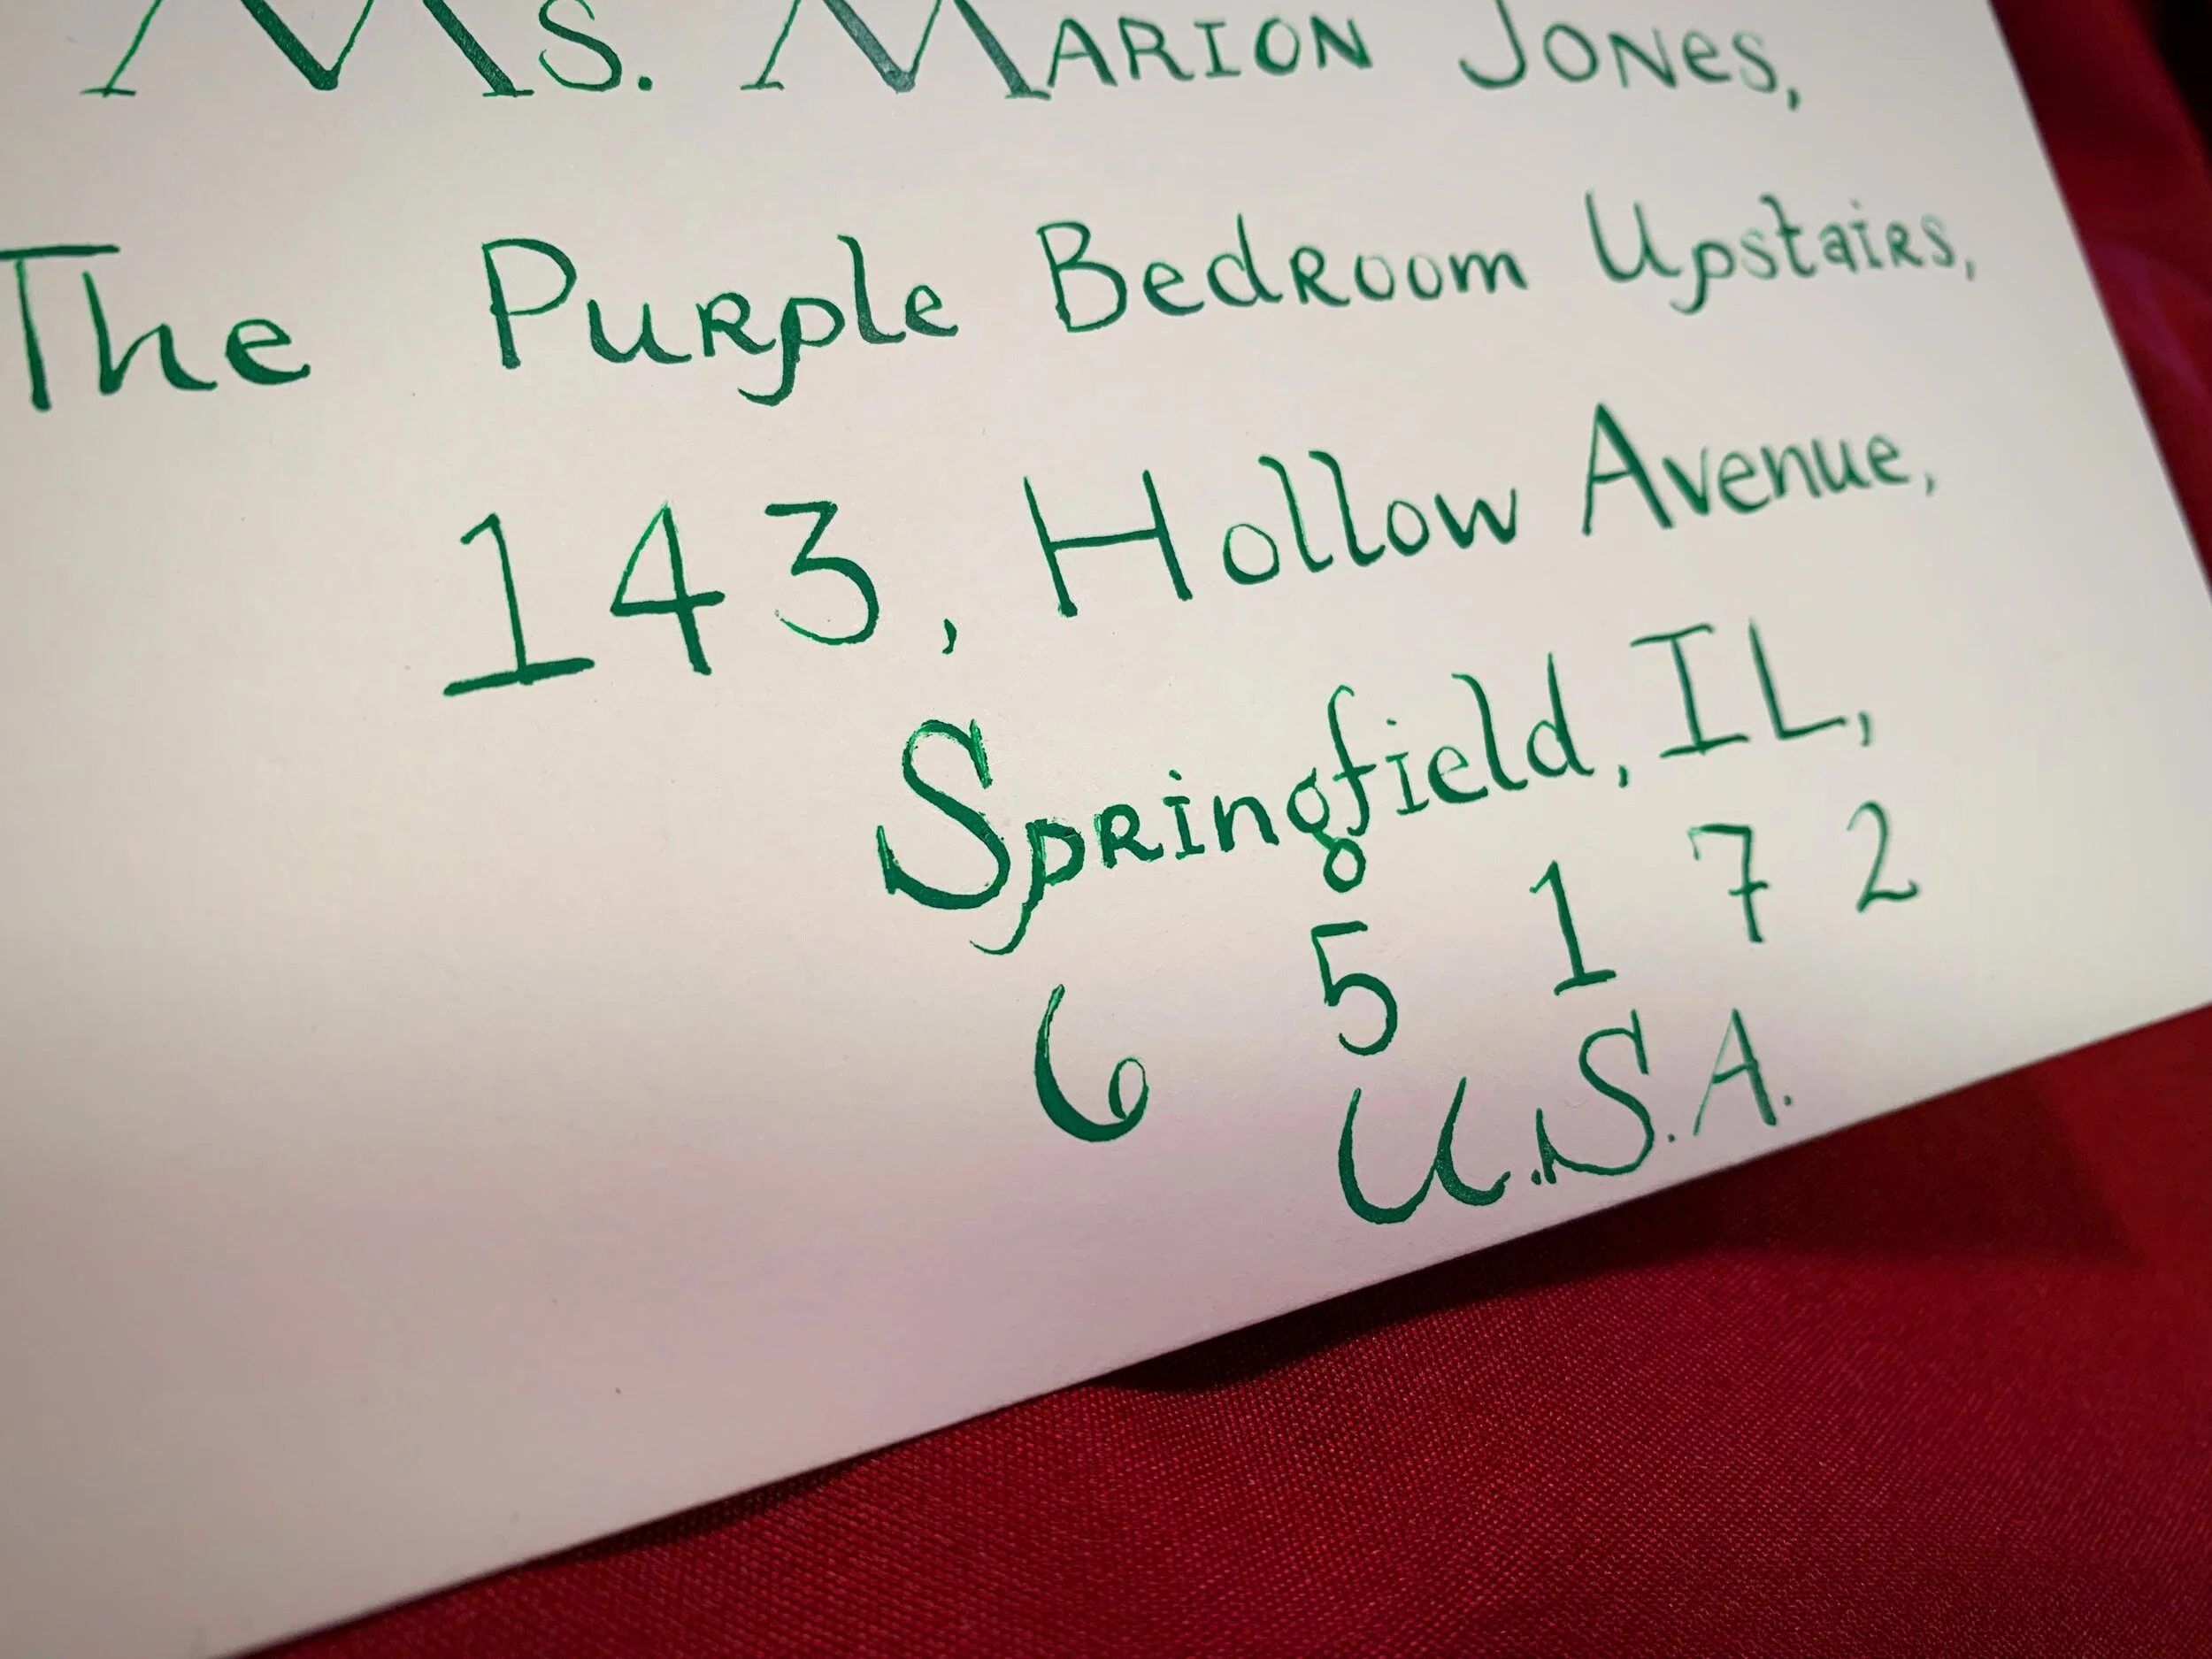 Ms. Marion Jones,
The Purple Bedroom Upstairs,
143, Hollow Avenue,
Springfield, IL,
6 5 1 7 2
U.S.A.